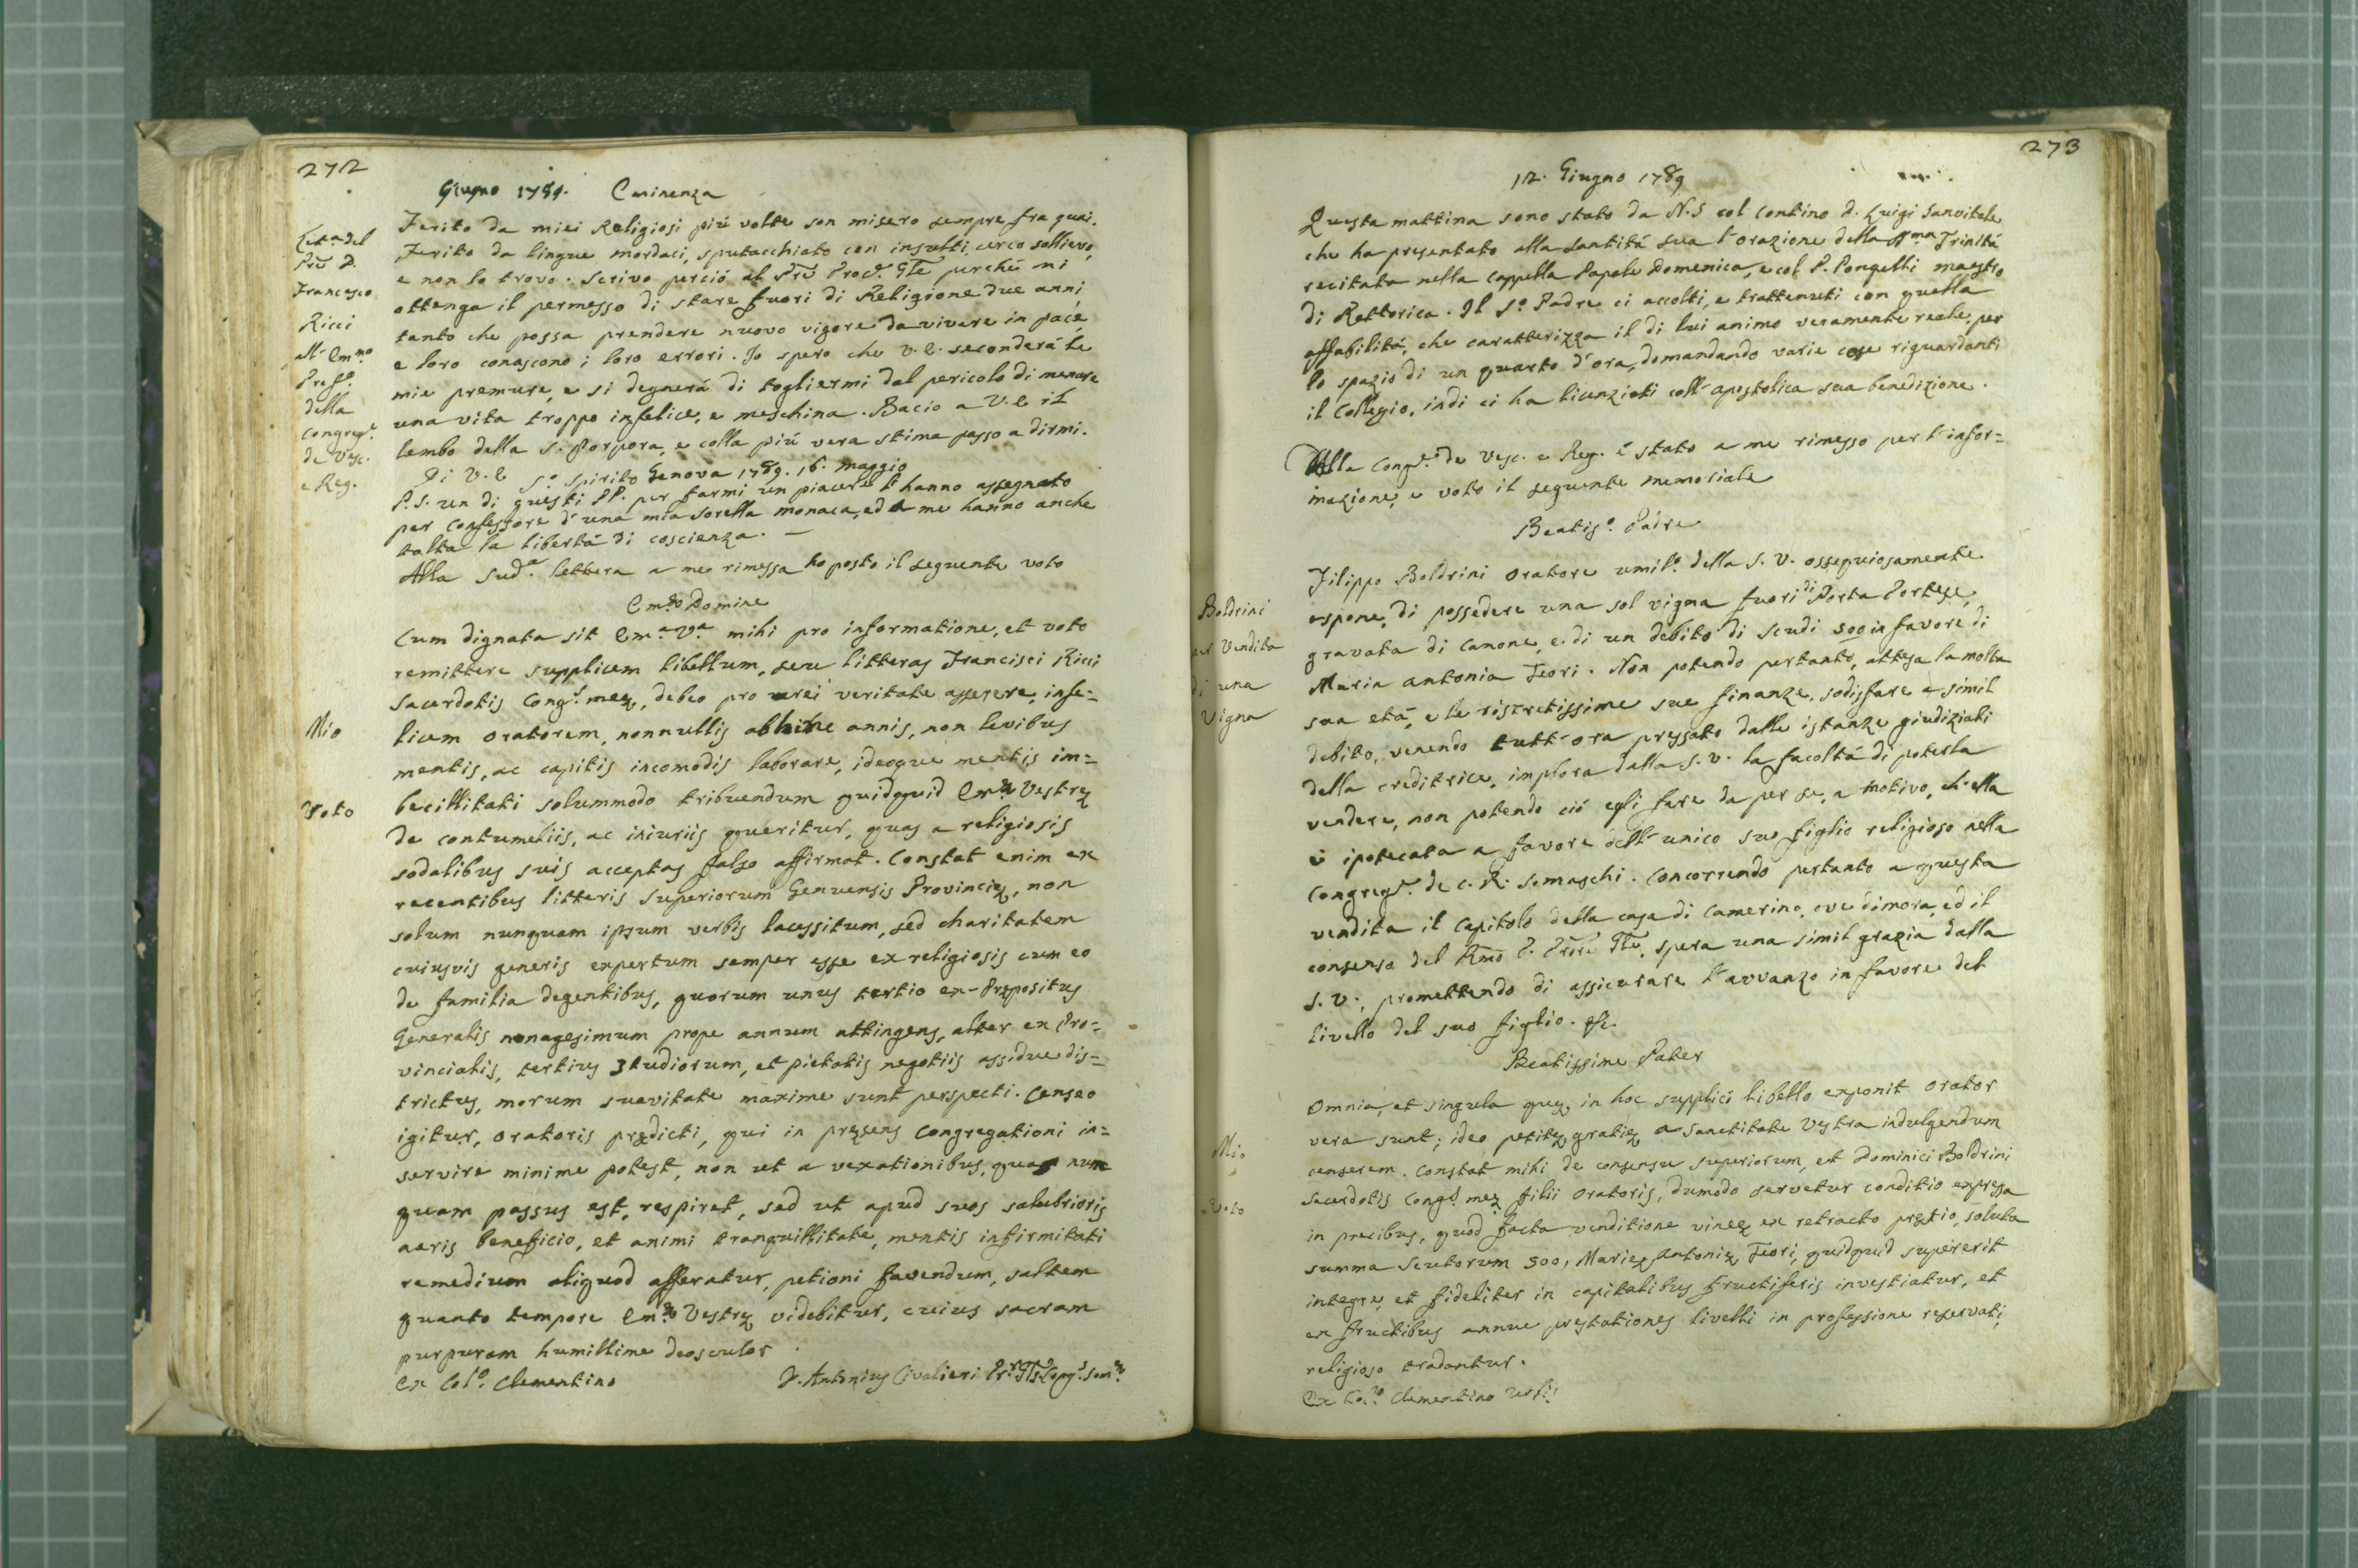 272
Giugno 1789. Eminenza
Lett.a del
Prē D.
Francesco
Ricci
all' Em.mo
Pref.o
della
Congreg.e
de Vesc.
e Reg.
Ferito da miei Religiosi piú volte son misero sempre fra guai.
Ferito da lingue mordaci, sputacchiato con insulti cerco sollievo,
e non lo trovo. Scrivo perció al Prē Proc.r Gīle perché mi
ottenga il permesso di stare fuori di Religione due anni,
tanto che possa prendere nuovo vigore da vivere in pace,
e loro conoscono i loro errori. Io spero che V.E. seconderá le
mie premure, e si degnerá di togliermi dal pericolo di menare
una vita troppo infelice, e meschina. Bacio a V.E il
lembo della S. Porpora, e colla piú vera stima passo a dirmi.
Di V.E S.o Spirito Genova 1789. 16. maggio
P.S. un di questi PP. per farmi un piacere l'hanno assegnato
per Confessore d'una mia sorella monaca, ed a me hanno anche
tolta la libertá di coscienza. —
Alla sud.a lettera a me rimessa ho posto il seguente voto
Em.e Domine
Mio
Voto
Cum dignata sit Em.a V.a mihi pro informatione, et voto
remittere supplicem libellum, seu litteras Francisci Ricci
Sacerdotis Cong.s meę, debeo pro rei veritate asserere, infe=
licem Oratorem, nonnullis abhinc annis, non levibus
mentis, ac capitis incomodis laborare, ideoque mentis im=
becillitati solummodo tribuendum quidquid Em.ę Vestrę
de contumeliis, ac iniuriis queritur, quas a religiosis
sodalibus suis acceptas falso affirmat. Constat enim ex
recentibus litteris Superiorum Genuensis Provincię, non
solum nunquam ipsum verbis lacessitum, sed charitatem
cuiusvis generis expertum semper esse ex religiosis cum eo
de familia degentibus, quorum unus tertio ex-Prępositus
Generalis nonagesimum prope annum attingens, alter ex Pro=
vincialis, tertius studiorum, et pietatis negotiis assidue dis=
trictus, morum suavitate maxime sunt perspecti. Censeo
igitur, Oratoris prędicti, qui in pręsens Congregationi in=
servire minime potest, non ut a vexationibus, quas nun
quam passus est, respiret, sed ut apud suos salubrioris
aeris beneficio, et animi tranquillitate, mentis infirmitati
remedium aliquod afferatur, petioni favendum, saltem
quanto tempore Em.ę Vestrę videbitur, cuius sacram
purpuram humillime deosculor
Ex Col.o Clementino D. Antonius Civalieri Pr.r Gīs Cong.s Som.ę
273
12. Giugno 1789
Questa mattina sono stato da N.S col Contino D. Luigi Sanvitale
che ha presentato alla Santitá sua l'orazione della SS.ma Trinitá
recitata nella Cappella Papale Domenica, e col P. Pongelli maestro
di Rettorica. Il S.o Padre ci accolti, e trattenuti con quella
affabilitá, che caratterizza il di lui animo veramente reale per
lo spazio di un quarto d'ora, domandando varie cose riguardanti
il Collegio, indi ci ha licenziati coll'apostolica sua benedizione.
Alla Cong.e de Vesc. e Reg. é stato a me rimesso per l'infor=
mazione, e voto il seguente memoriale
Beatis.o Padre
Boldrini
per Vendita
di una
Vigna
Filippo Boldrini Oratore umil.o della S.V. ossequiosamente
espone, di possedere una sol vigna fuori di Porta Portese,
gravata di Canone, e di un debito di scudi 500 in favore di
Maria Antonia Feori. Non potendo pertanto, attesa la molta
sua etá, e le ristrettissime sue finanze, sodisfare a simil
debito, venendo tutt'ora pressato dalle istanze giudiziali
della creditrice, implora dalla S.V. la facoltá di poterla
vendere, non potendo ció egli fare da per se, a motivo, ch'ella
é ipotecata a favore dell'unico suo figlio religioso nella
Congreg.e de C.R. Somaschi. Concorrendo pertanto a questa
vendita il Capitolo della casa di Camerino, ove dimora, ed il
consenso del Rmō P. Prore Gīle, spera una simil grazia dalla
S.V., promettendo di assicurare l'avvanzo in favore del
livello del suo figlio. &c.
Beatissime Pater
Mio
Voto
Omnia, et singula quę in hoc supplici libello exponit Orator
vera sunt; ideo petitę gratię a Sanctitate Vestra indulgendum
censerem. Constat mihi de consensu superiorum, et Dominici Boldrini
Sacerdotis Cong.s meę filii Oratoris, dumodo servetur conditio expressa
in precibus, quod facta venditione vineę ex retracto prętio, soluta
summa scutorum 500, Marię Antonię Feori, quidquid supererit
integre, et fideliter in capitalibus fructiferis investiatur, et
ex fructibus annue prestationes livelli in professione reservati,
religioso tradantur.
Ex Col.o Clementino Urbis